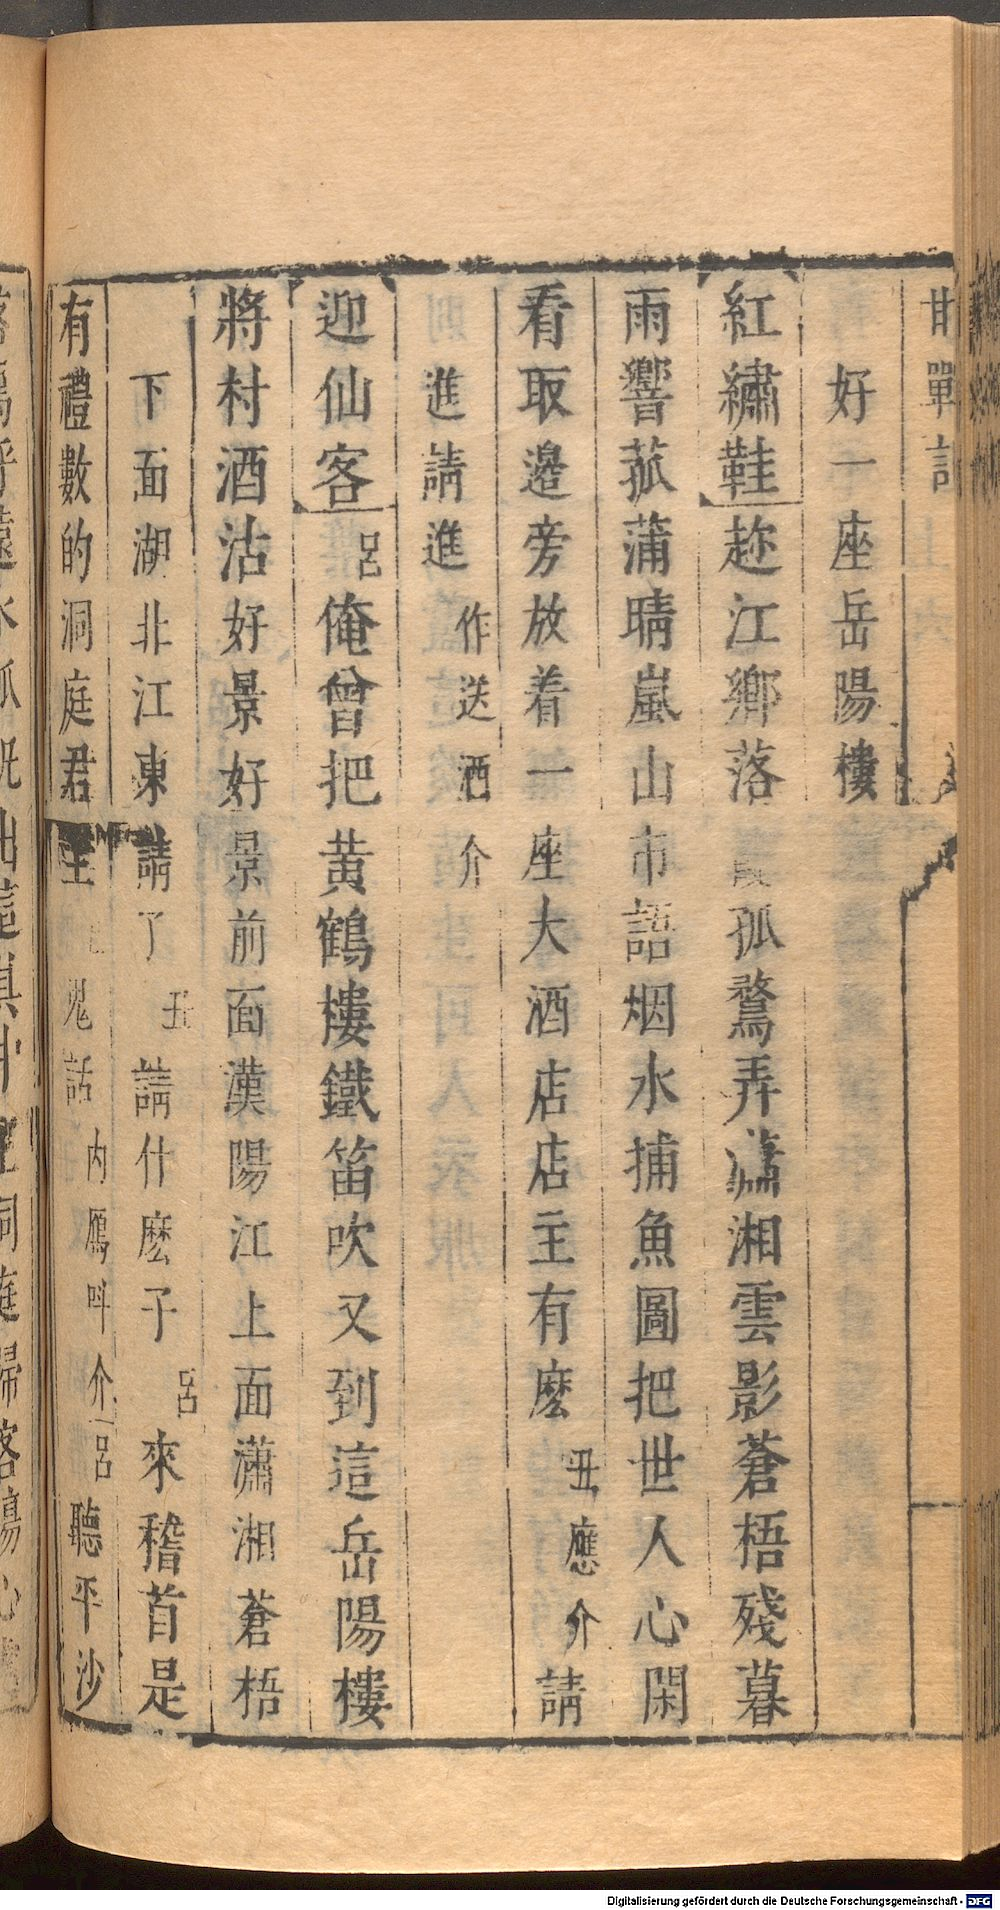 好一座岳陽樓
紅繡鞋 趂江鄉落霞孤鶩弄瀟湘雲影蒼梧殘暮
雨響菰蒲晴嵐山市語烟水捕魚圖把世人心閑
看取邊旁放着一座大酒店店主有麽 丑應介 請
進請進 作送酒介
迎仙客 呂 俺曾把黃鶴樓鐵笛吹又到這岳陽樓
將村酒沽好景好景前面漢陽江上面瀟湘蒼梧
下面湖北江東請了 丑 請什麽子 呂 來稽首是
有禮數的洞庭君主 鬼話 内鴈呌介 呂 聽平沙
Digitalisierung gefördert durch die Deutsche Forschungsgemeinschaft - DFG